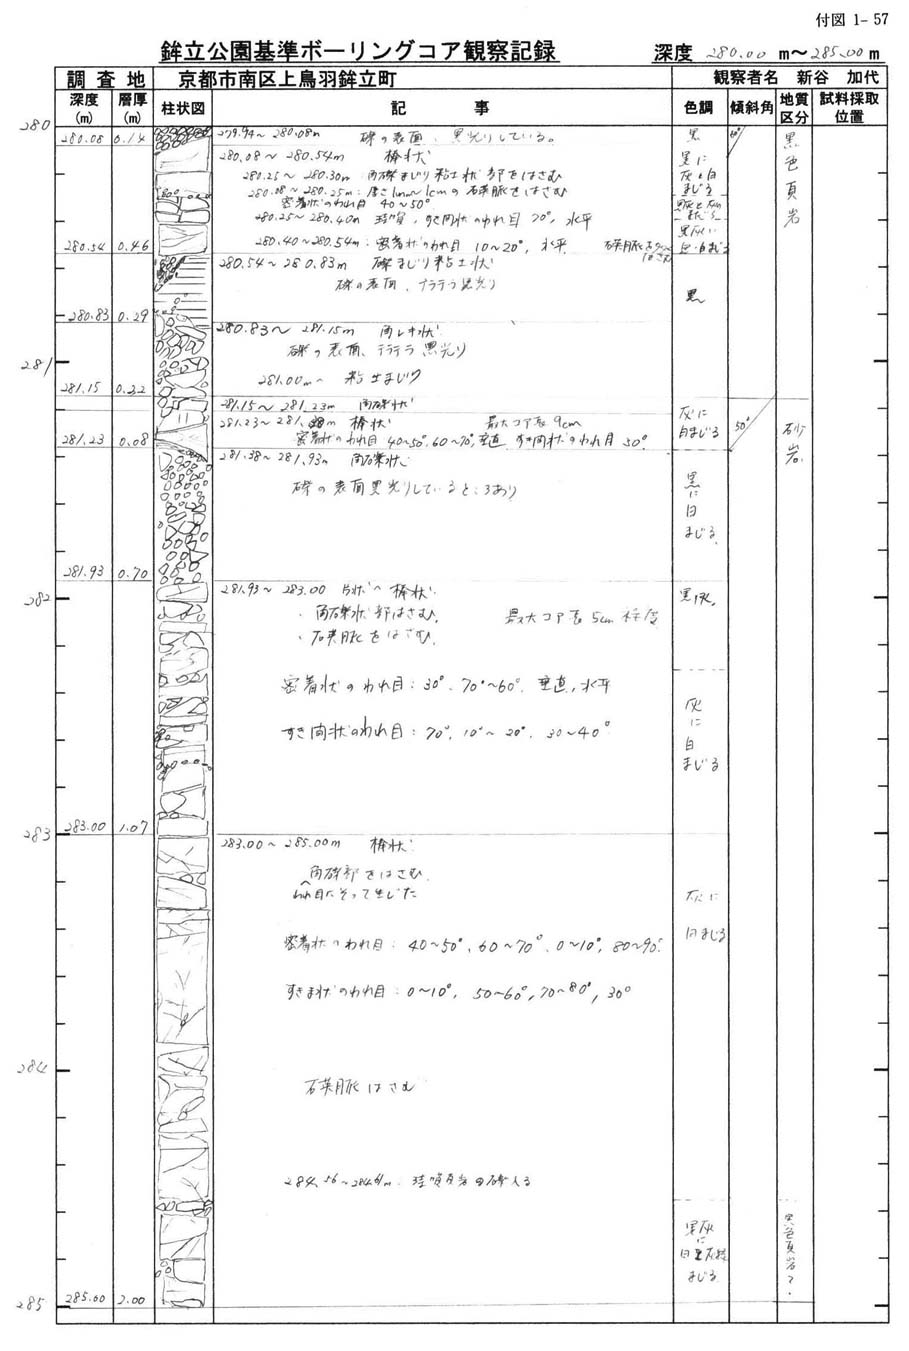 付図 1-57
鉾立公園基準ボーリングコア観察記録
深度 280.00 m～285.00 m
調査地 京都市南区上鳥羽鉾立町 観察者名 新谷 加代
深度(m) 層厚(m) 柱状図 記事 色調 傾斜角 地質区分 試料採取位置
280
280.08 0.14 279.94～280.08m 礫の表面、黒光りしている。 黒 60°
黒色頁岩
280.08～280.54m 棒状
280.25～280.30m 角礫まじり粘土状部をはさむ 黒に灰と白まじる
280.08～280.25m:厚さ1mm～1cmの石英脈をはさむ
密着状のわれ目 40～50°
280.25～280.40m 珪質、すき間状のわれ目 70°, 水平
280.54 0.46 280.40～280.54m:密着状のわれ目 10～20°, 水平
280.54～280.83m 礫まじり粘土状
礫の表面、テラテラ黒光り
黒
280.83 0.29
280.83～281.15m 角レキ状
礫の表面、テラテラ黒光り
281
281.00m～ 粘土まじり
281.15 0.32
281.15～281.23m 角礫状
281.23～281. m 棒状 最大コア長 9cm 灰に白まじる 50° 砂岩
281.23 0.08 密着状のわれ目 40～50°, 60～70°, 垂直 すき間状のわれ目 50°
281.38～281.93m 角礫状
礫の表面黒光りしているところあり
黒に白まじる
281.93 0.70
282
281.93～283.00 片状～棒状 黒灰
・角礫状部はさむ。 最大コア長5cm程度
・石英脈をはさむ。
密着状のわれ目:30°、70°～60°、垂直, 水平
灰に白まじる
すき間状のわれ目:70°, 10°～20°, 30～40°
283
283.00 1.07
283.00～285.00m 棒状
角礫部をはさむ
われ目にそって生じた
灰に白まじる
密着状のわれ目:40～50°, 60～70°, 0～10°, 80～90°
すきま状のわれ目:0～10°, 50～60°, 70～80°, 30°
284
石英脈はさむ
284.56～284.61m:珪質頁岩の礫入る
黒灰に
まじる
黒色頁岩?
285
285.00 2.00